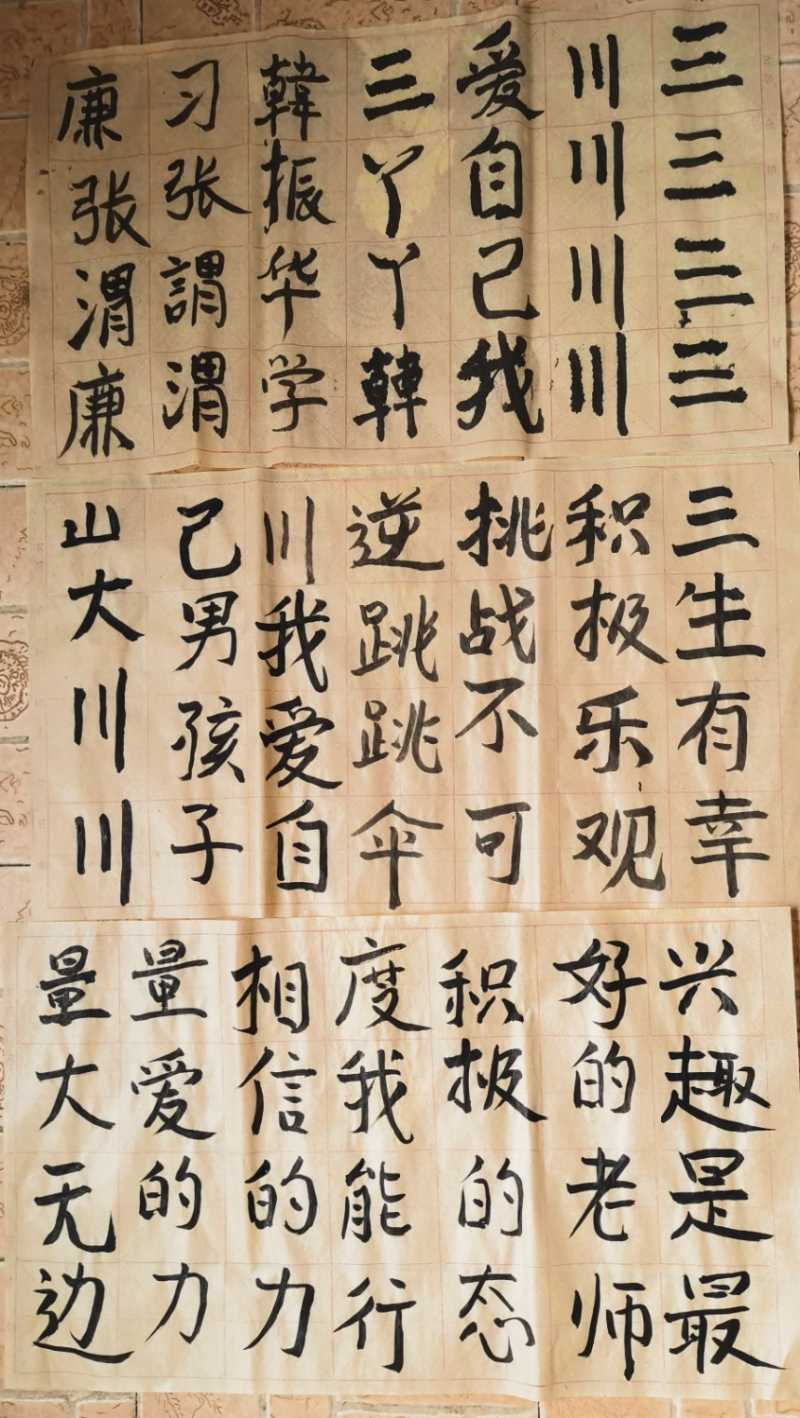 三三三三
川川川川
爱自己我
三丫丫韓
韓振华学
习张謂渭
廉张渭廉
三生有幸
积极乐观
挑战不可
逆跳跳伞
川我爱自
己男孩子
山大川川
兴趣是最
好的老师
积极的态
度我能行
相信的力
量爱的力
量大无边